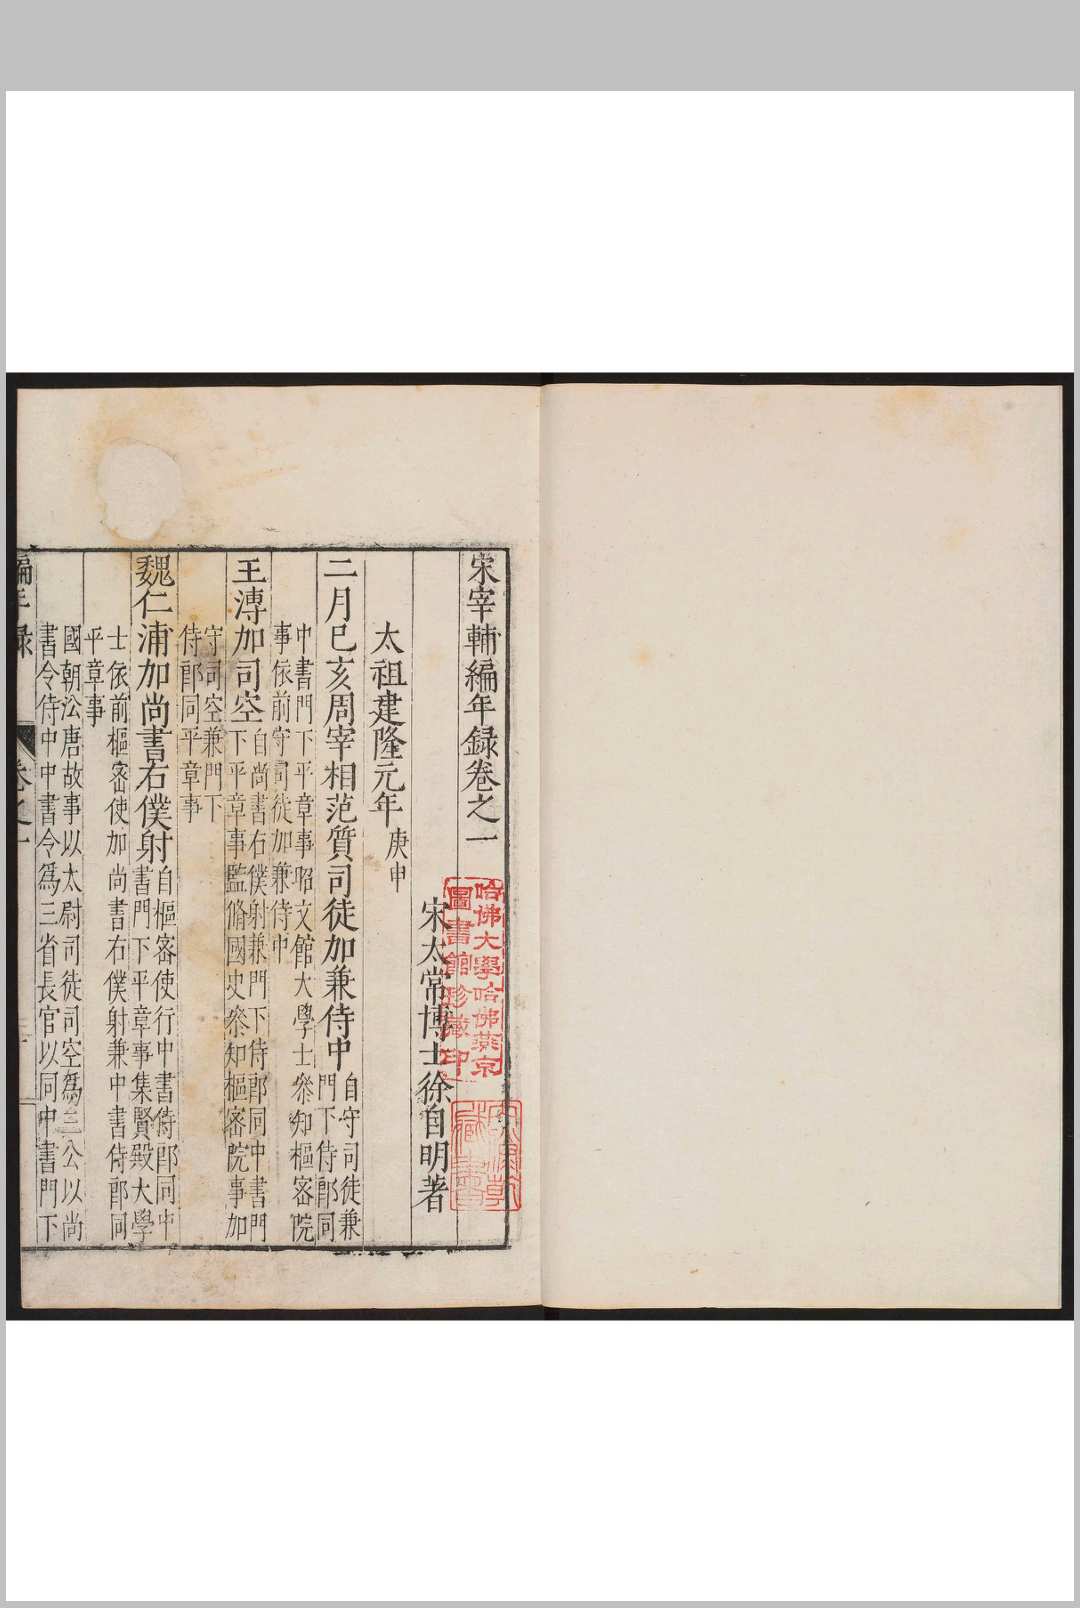 宋宰輔編年録卷之一
宋太常博士徐自明著
太祖建隆元年庚申
二月巳亥周宰相范質司徒加兼侍中自守司徒兼
門下侍郎同
中書門下平章事昭文館大學士叅知樞密院
事依前守司徒加兼侍中
王溥加司空自尚書右僕射兼門下侍郎同中書門
下平章事監脩國史叅知樞密院事加
守司空兼門下
侍郎同平章事
魏仁浦加尚書右僕射自樞密使行中書侍郎同中
書門下平章事集賢殿大學
士依前樞密使加尚書右僕射兼中書侍郎同
平章事
國朝沿唐故事以太尉司徒司空爲三公以尚
書令侍中中書令爲三省長官以同中書門下
編年録
卷之一
哈佛大學哈佛燕京
圖書館珍藏印
藏書